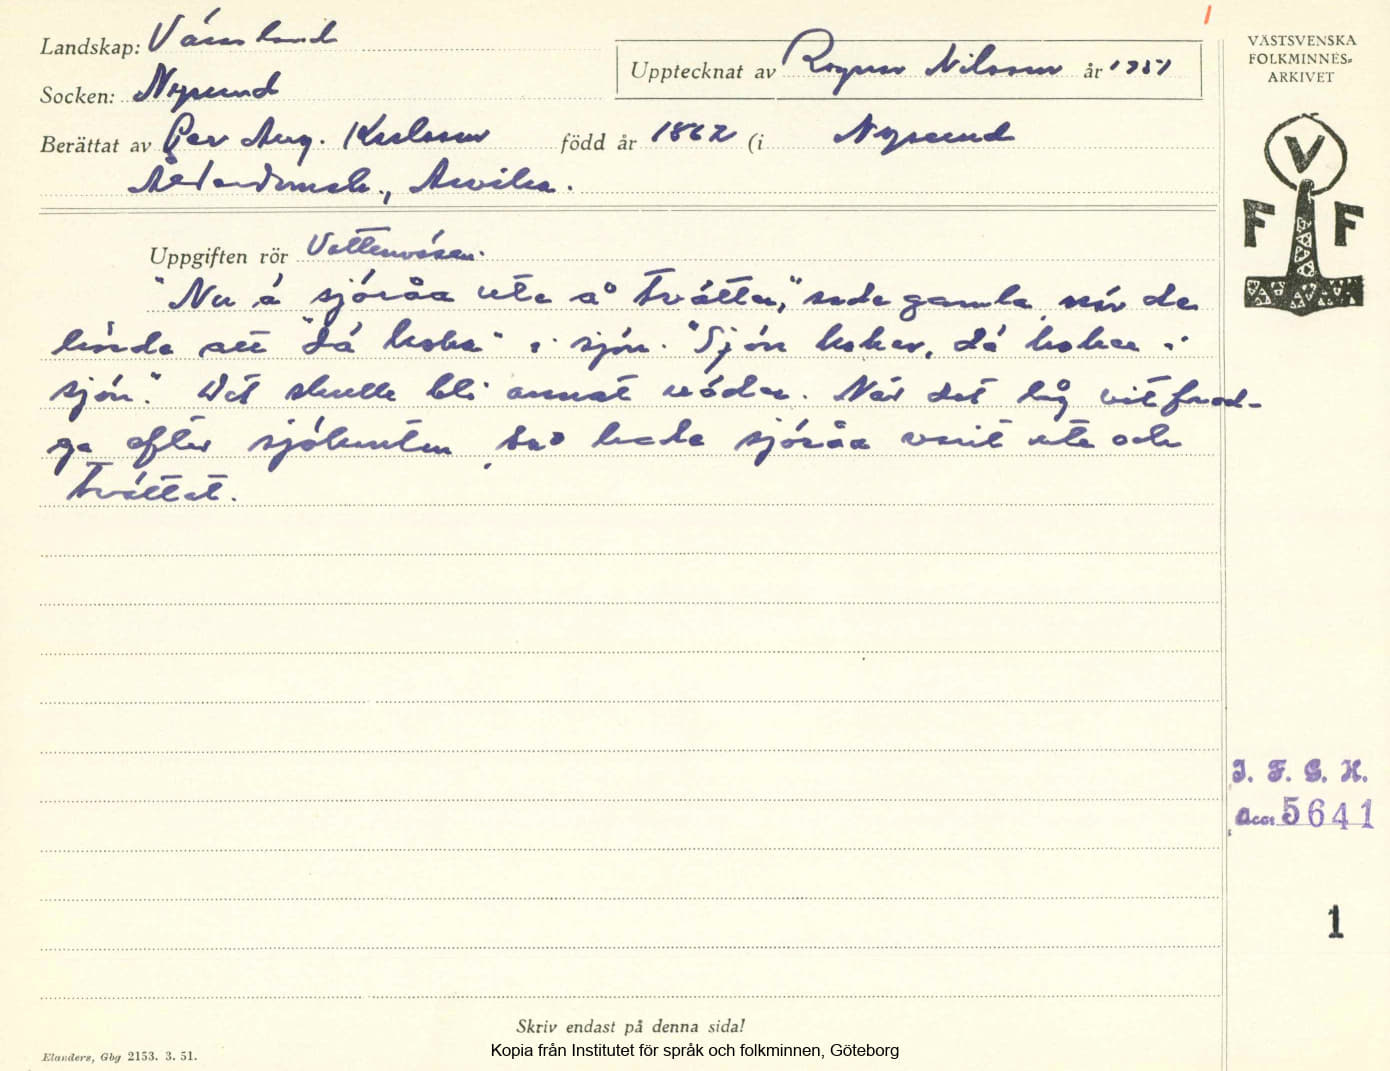 Landskap: Värmland
Upptecknat av Ragnar Nilsson år 1951
VÄSTSVENSKA
FOLKMINNES-
ARKIVET
Socken: Nysund
Berättat av Per Aug. Karlsson född år 1862 (i Nysund
Ålderdomsh., Arvika.
V
F F
Uppgiften rör Vattenväsen.
"Nu ä sjöråa ute å tvätter," sade gamla, när de
hörde att "dä koka" i sjön. "Sjön koker, dä koker i
sjön." Det skulle bli annat väder. När det låg vit frad-
ga efter sjökanten, då hade sjöråa varit ute och
tvättat.
I. F. G. H.
Acc. 5641
1
Skriv endast på denna sida!
Elanders, Gbg 2153. 3. 51.
Kopia från Institutet för språk och folkminnen, Göteborg